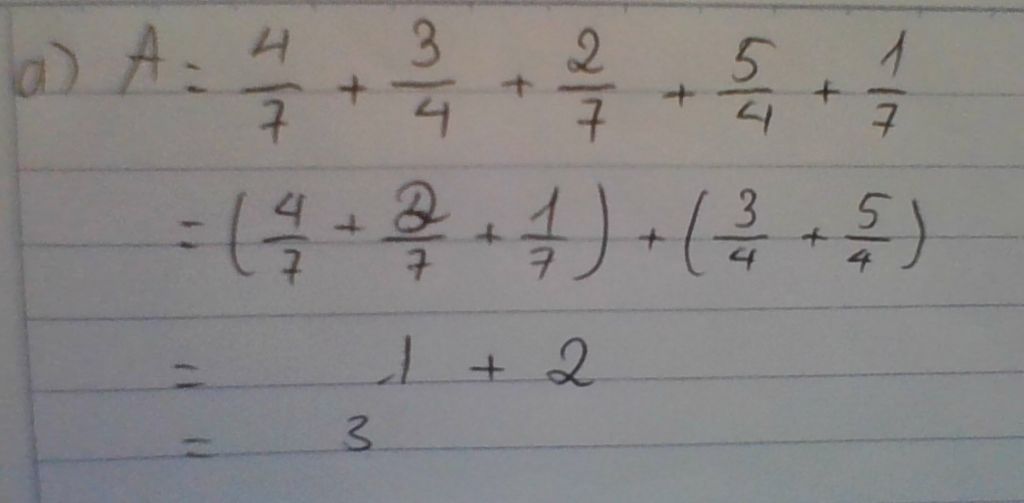 a) A = 4/7 + 3/4 + 2/7 + 5/4 + 1/7
= (4/7 + 2/7 + 1/7) + (3/4 + 5/4)
= 1 + 2
= 3